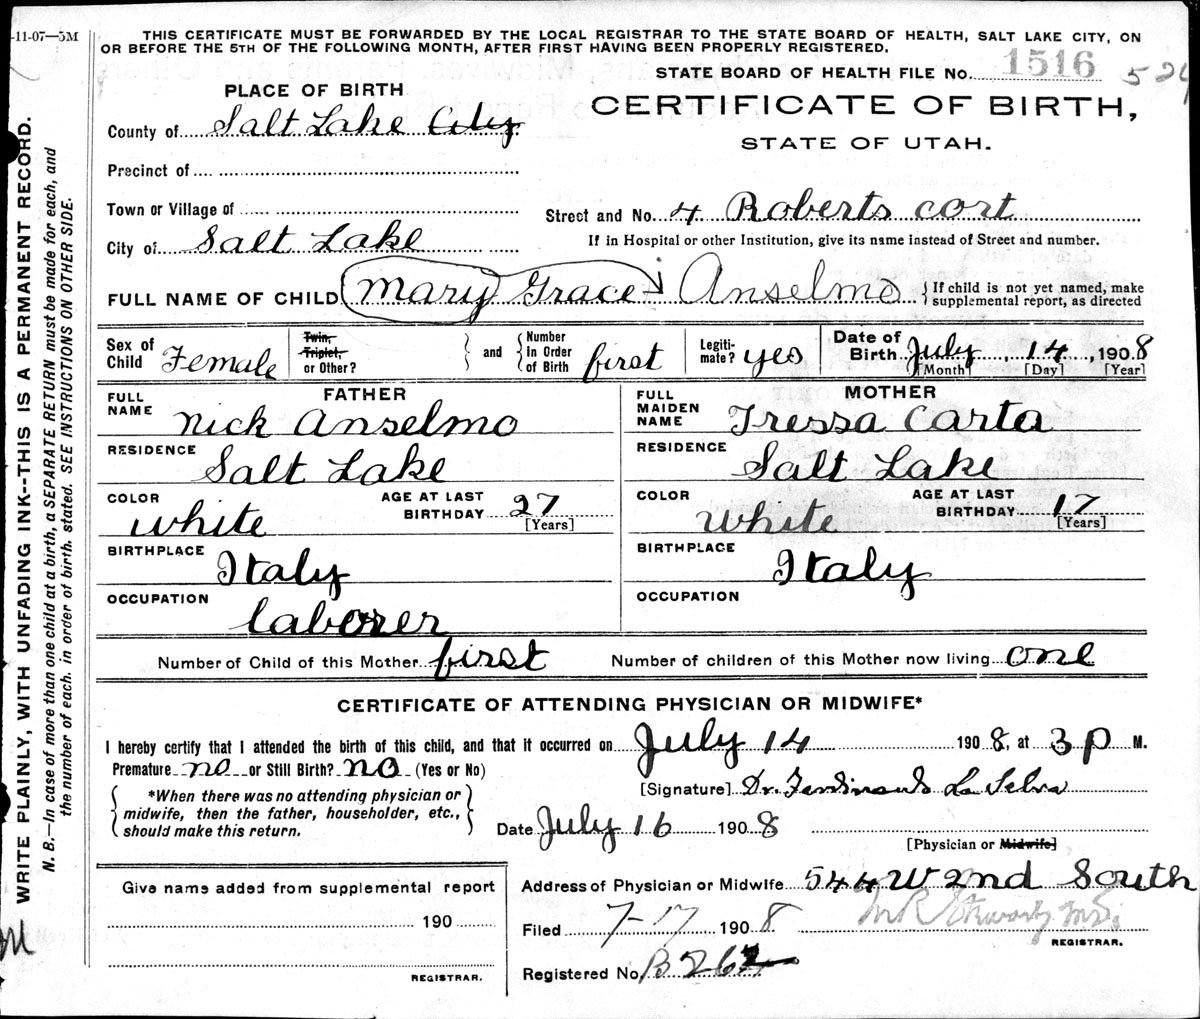 -11-07—5M
THIS CERTIFICATE MUST BE FORWARDED BY THE LOCAL REGISTRAR TO THE STATE BOARD OF HEALTH, SALT LAKE CITY, ON
OR BEFORE THE 5TH OF THE FOLLOWING MONTH, AFTER FIRST HAVING BEEN PROPERLY REGISTERED.
STATE BOARD OF HEALTH FILE No. 1516
PLACE OF BIRTH
CERTIFICATE OF BIRTH,
STATE OF UTAH.
County of Salt Lake City
Precinct of
Town or Village of
Street and No. 4 Roberts cort
City of Salt Lake
If in Hospital or other Institution, give its name instead of Street and number.
FULL NAME OF CHILD (Mary) Grace Anselmo } If child is not yet named, make
supplemental report, as directed
Sex of Child Female
Twin, Triplet, or Other? } and { Number in Order of Birth first
Legiti-mate? yes
Date of Birth July, 14, 1908
[Month] [Day] [Year]
FATHER
FULL NAME Nick Anselmo
RESIDENCE Salt Lake
COLOR white
AGE AT LAST BIRTHDAY 27 [Years]
BIRTHPLACE Italy
OCCUPATION laborer
MOTHER
FULL MAIDEN NAME Tressa Carta
RESIDENCE Salt Lake
COLOR White
AGE AT LAST BIRTHDAY 17 [Years]
BIRTHPLACE Italy
OCCUPATION
Number of Child of this Mother first Number of children of this Mother now living one
CERTIFICATE OF ATTENDING PHYSICIAN OR MIDWIFE*
I hereby certify that I attended the birth of this child, and that it occurred on July 14 1908, at 3 p M.
Premature no or Still Birth? no (Yes or No)
[Signature] Dr. Ferdinando La Selva
{ *When there was no attending physician or
midwife, then the father, householder, etc.,
should make this return. }
Date July 16 1908
[Physician or Midwife]
Give name added from supplemental report
190
REGISTRAR.
Address of Physician or Midwife 544 W 2nd South
Filed 7-17 1908
REGISTRAR.
Registered No. B 262
WRITE PLAINLY, WITH UNFADING INK--THIS IS A PERMANENT RECORD.
N. B.—In case of more than one child at a birth, a SEPARATE RETURN must be made for each, and
the number of each, in order of birth, stated. SEE INSTRUCTIONS ON OTHER SIDE.